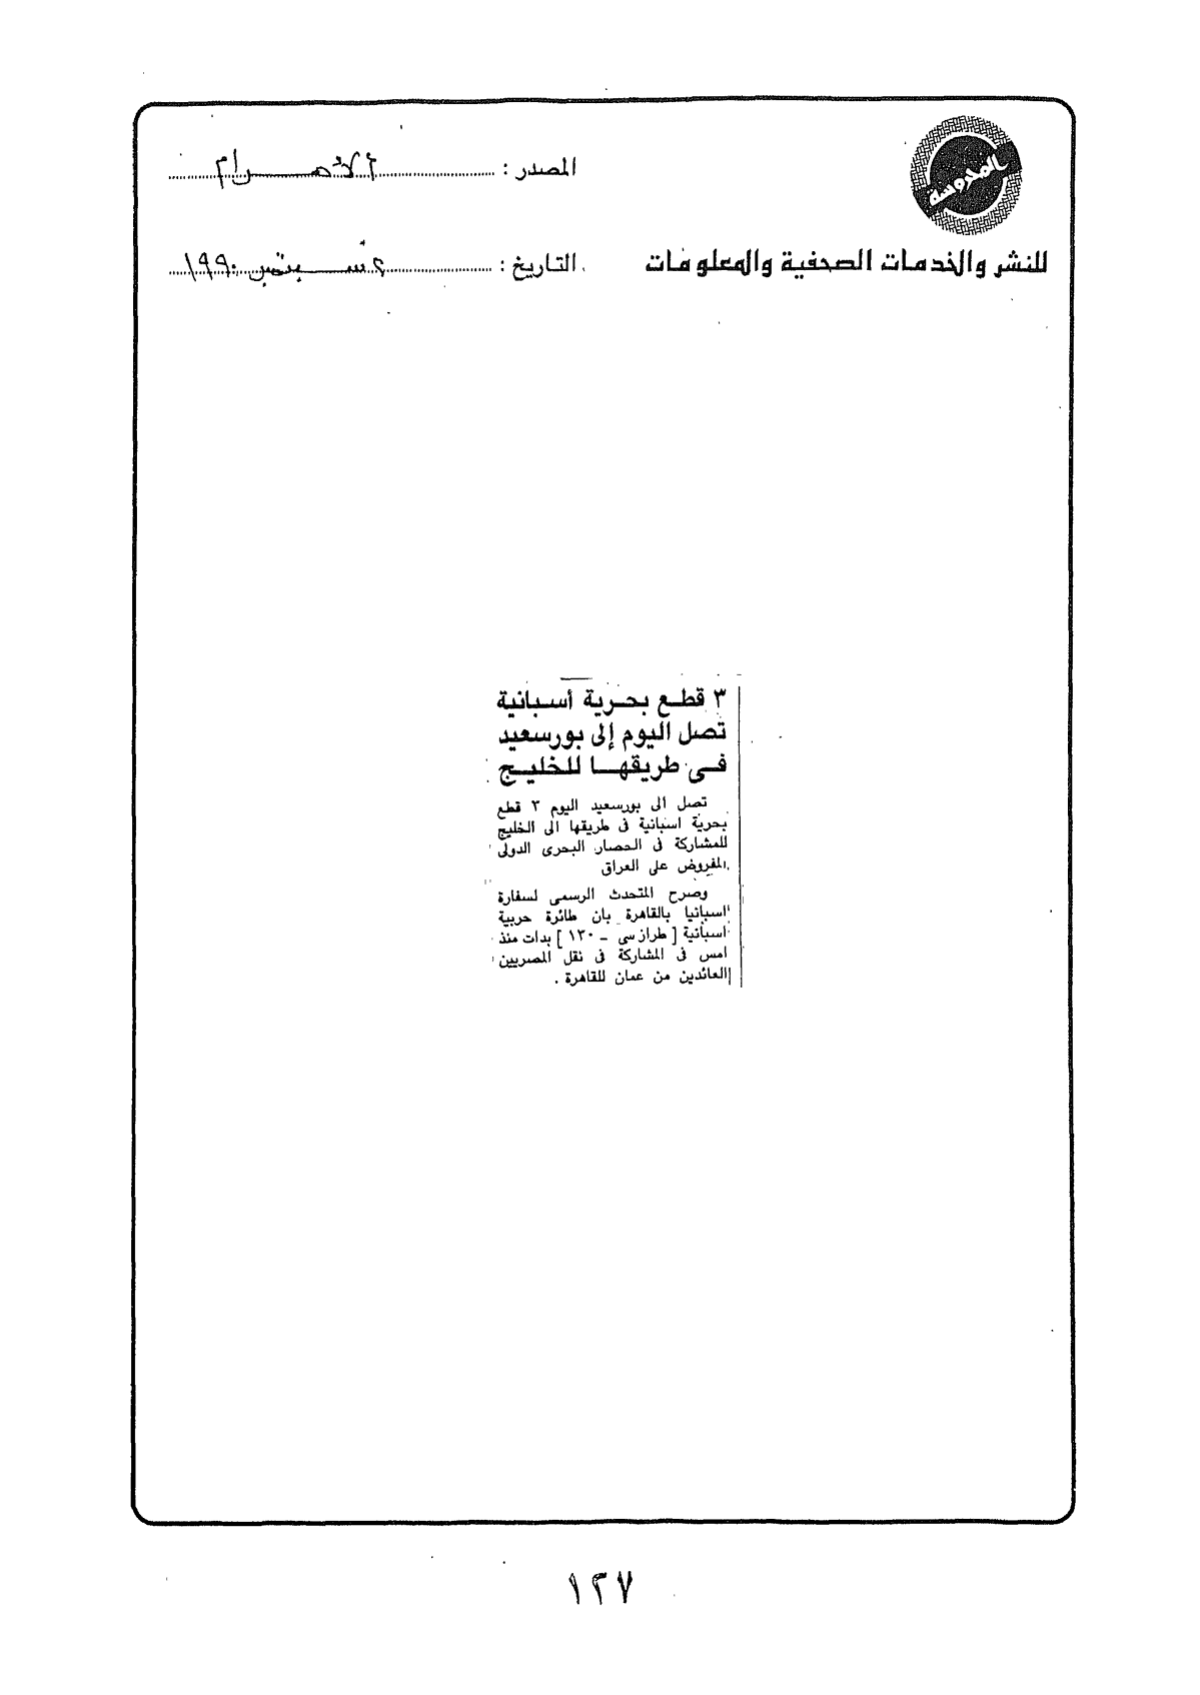 المحروسة
للنشر والخدمات الصحفية والمعلومات
المصدر : الأهرام
التاريخ : ٢ سبتمبر ١٩٩٠
٣ قطع بحرية أسبانية
تصل اليوم إلى بورسعيد
فى طريقها للخليج
تصل الى بورسعيد اليوم ٣ قطع
بحرية اسبانية فى طريقها الى الخليج
للمشاركة فى الحصار البحرى الدولى
المفروض على العراق
وصرح المتحدث الرسمى لسفارة
اسبانيا بالقاهرة بان طائرة حربية
اسبانية [ طراز سى - ١٣٠ ] بدات منذ
امس فى المشاركة فى نقل المصريين
العائدين من عمان للقاهرة .
١٢٧